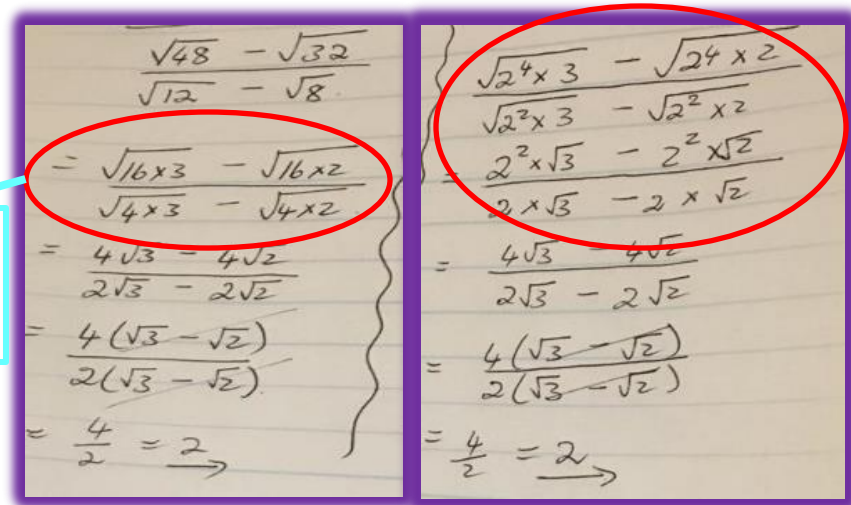 √48 - √32
√12 - √8
= √16×3 - √16×2
√4×3 - √4×2
= 4√3 - 4√2
2√3 - 2√2
= 4(√3 - √2)
2(√3 - √2)
= 4/2 = 2
√2⁴×3 - √2⁴×2
√2²×3 - √2²×2
= 2²×√3 - 2²×√2
2×√3 - 2×√2
= 4√3 - 4√2
2√3 - 2√2
= 4(√3 - √2)
2(√3 - √2)
= 4/2 = 2